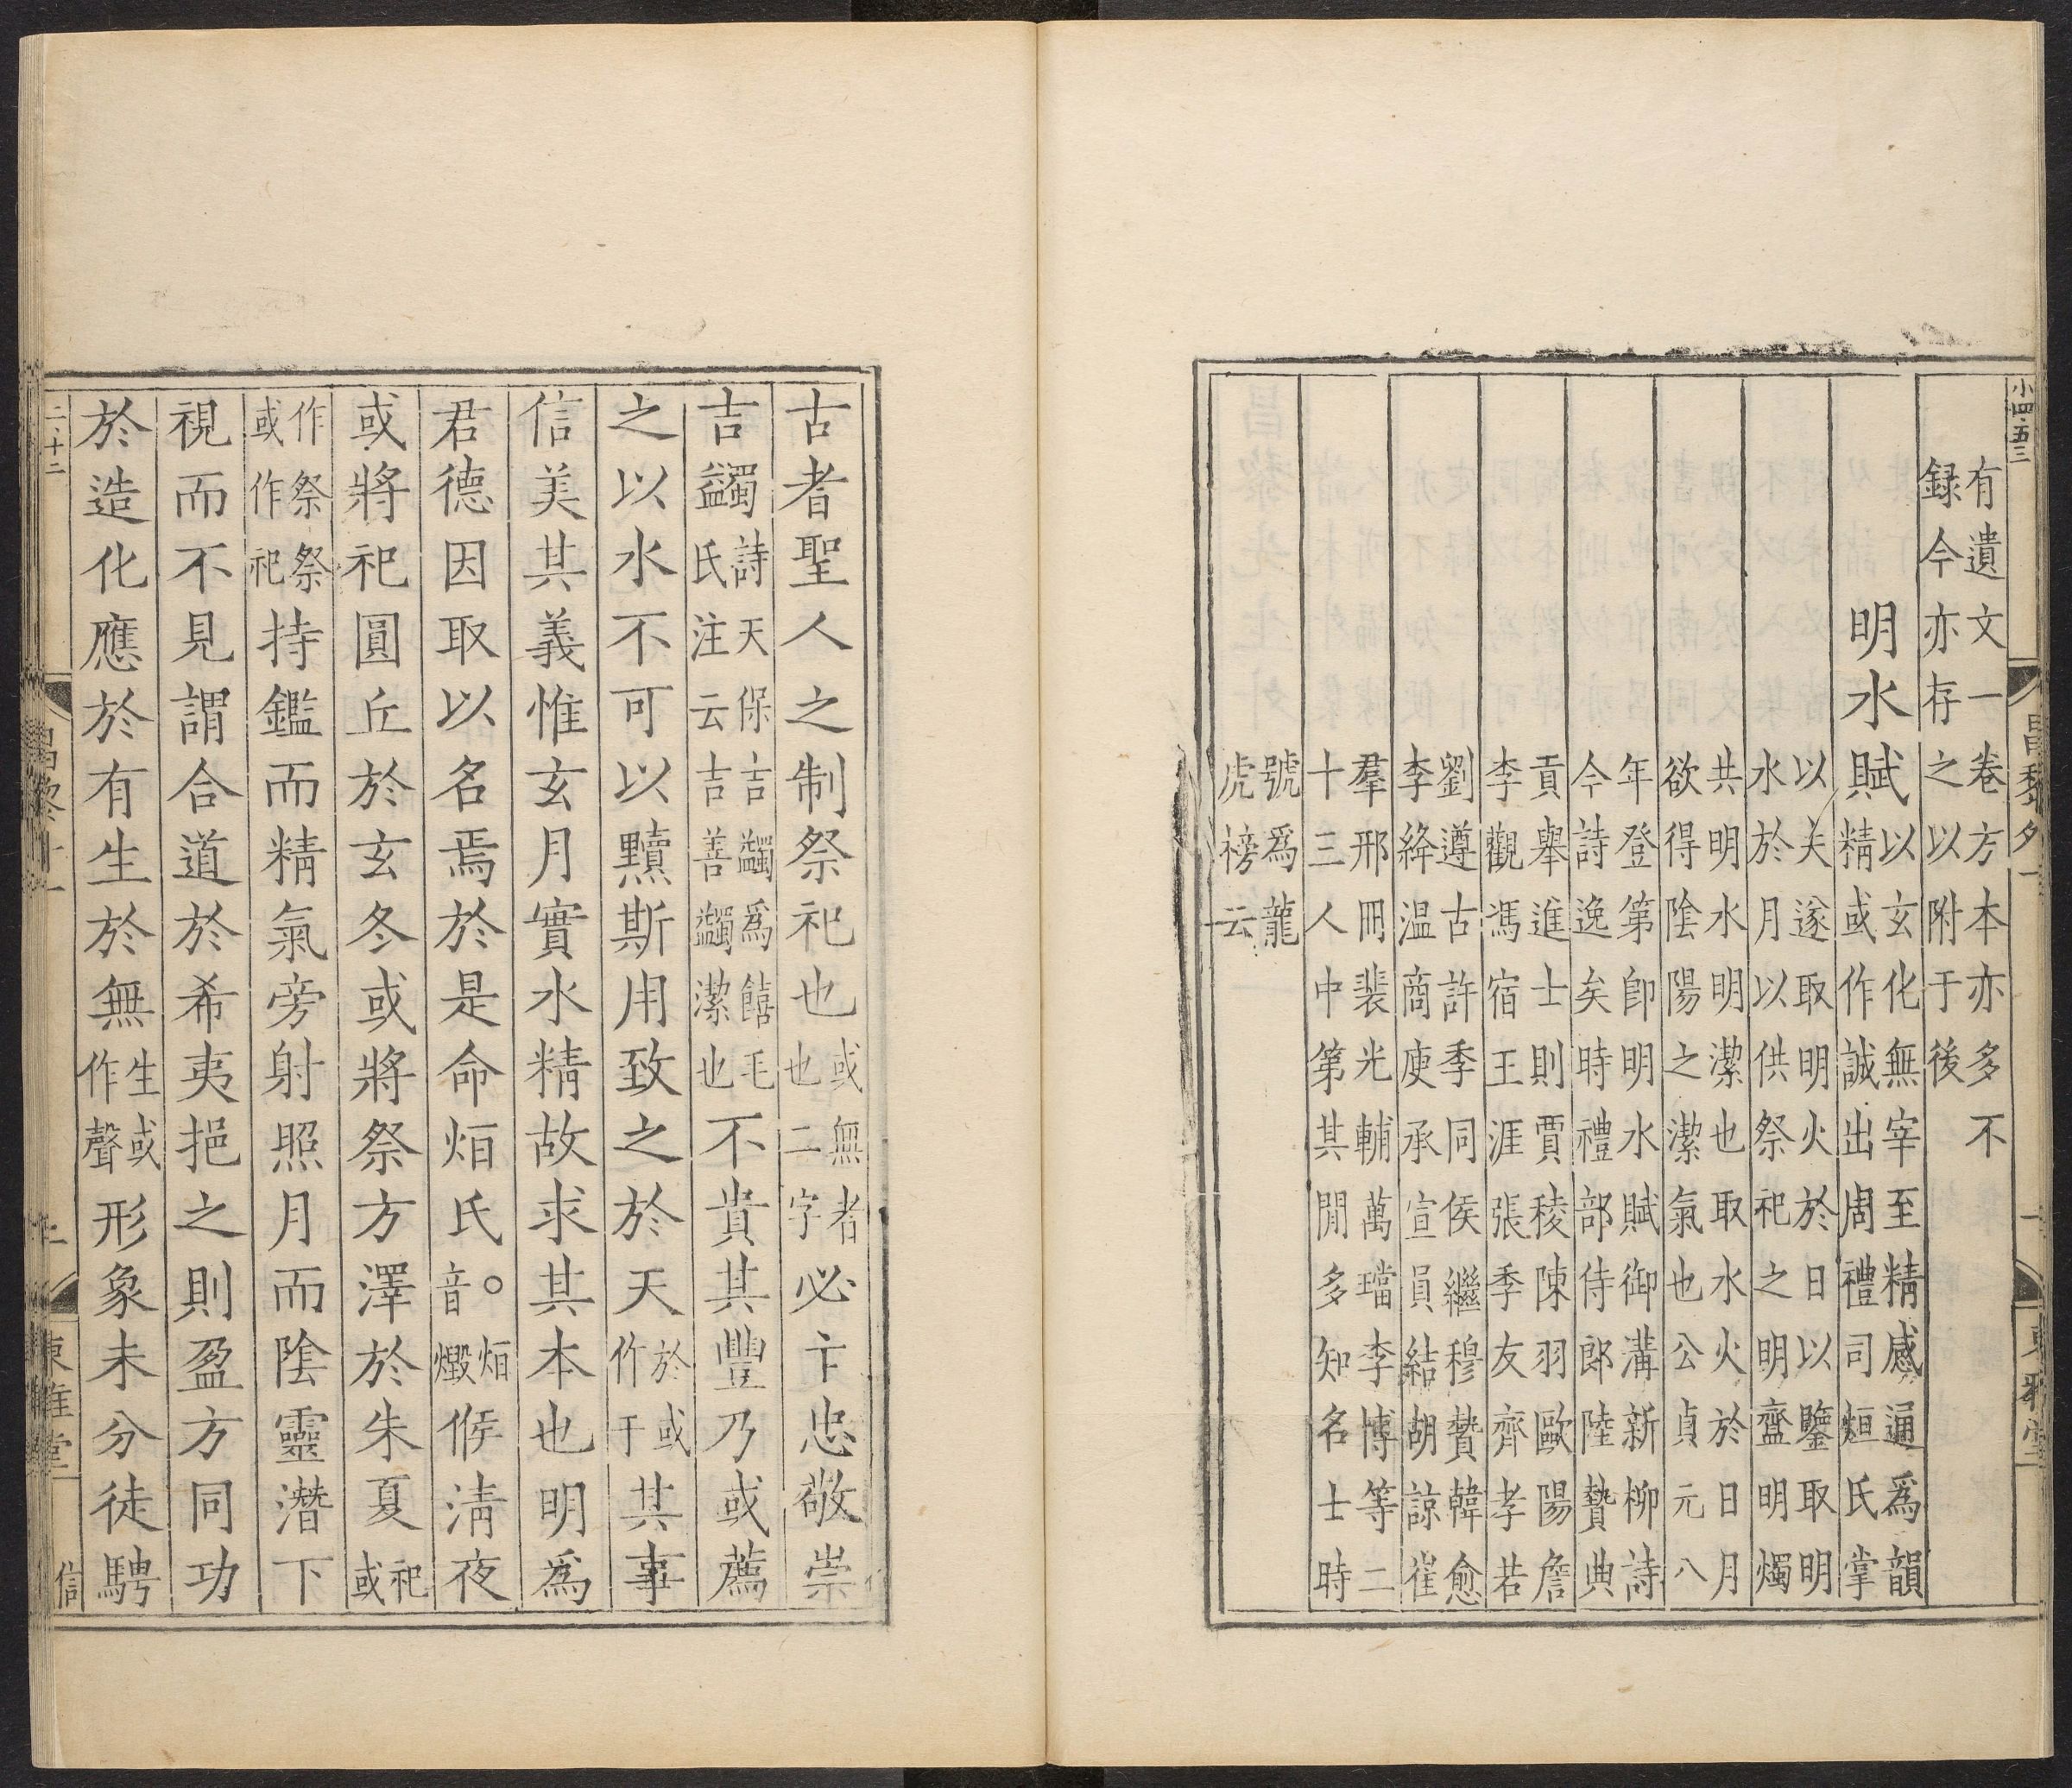 小四·五三
昌黎外一
一
東雅堂
有遺文一卷方本亦多不
録今亦存之以附于後
明水賦
以玄化無宰至精感通爲韻
精或作誠出周禮司烜氏掌
以夫遂取明火於日以鑒取明
水於月以供祭祀之明齍明燭
共明水明潔也取水火於日月
欲得陰陽之潔氣也公貞元八
年登第卽明水賦御溝新柳詩
今詩逸矣時禮部侍郎陸贄典
貢舉進士則賈稜陳羽歐陽詹
李觀馮宿王涯張季友齊孝若
劉遵古許季同侯繼穆贄韓愈
李絳温商庾承宣員結胡諒崔
羣邢冊裴光輔萬璫李博等二
十三人中第其閒多知名士時
號爲龍
虎榜云
古者聖人之制祭祀也或無者也二字必主忠敬崇
吉蠲詩天保吉蠲爲饎毛氏注云吉善蠲潔也不貴其豐乃或薦
之以水不可以黷斯用致之於天於或作于其事
信美其義惟玄月實水精故求其本也明爲
君德因取以名焉於是命烜氏○烜音燬候淸夜
或將祀圓丘於玄冬或將祭方澤於朱夏祀或
作祭祭或作祀持鑑而精氣旁射照月而陰靈潛下
視而不見謂合道於希夷挹之則盈方同功
於造化應於有生於無生或作聲形象未分徒騁
二·十二
昌黎外一
上
東雅堂
信